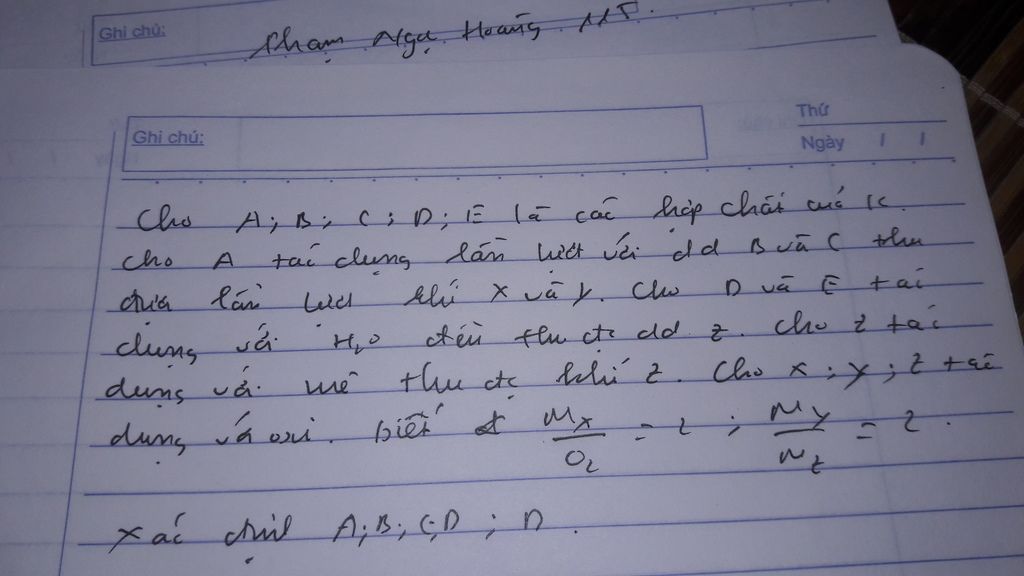 Ghi chú:
Phạm Ngọc Hoàng 11T.
Thứ
Ghi chú:
Ngày / /
Cho A; B; C; D; E là các hợp chất của K.
Cho A tác dụng lần lượt với dd B và C thu
được lần lượt khí X và Y. Cho D và E tác
dụng với H₂O đều thu đc dd Z. Cho Z tác
dụng với thu đc khí Z. Cho X; Y; Z tác
dụng với oxi. Biết Mx/O₂ = 2; My/Mz = 2.
Xác định A; B; C; D; D.